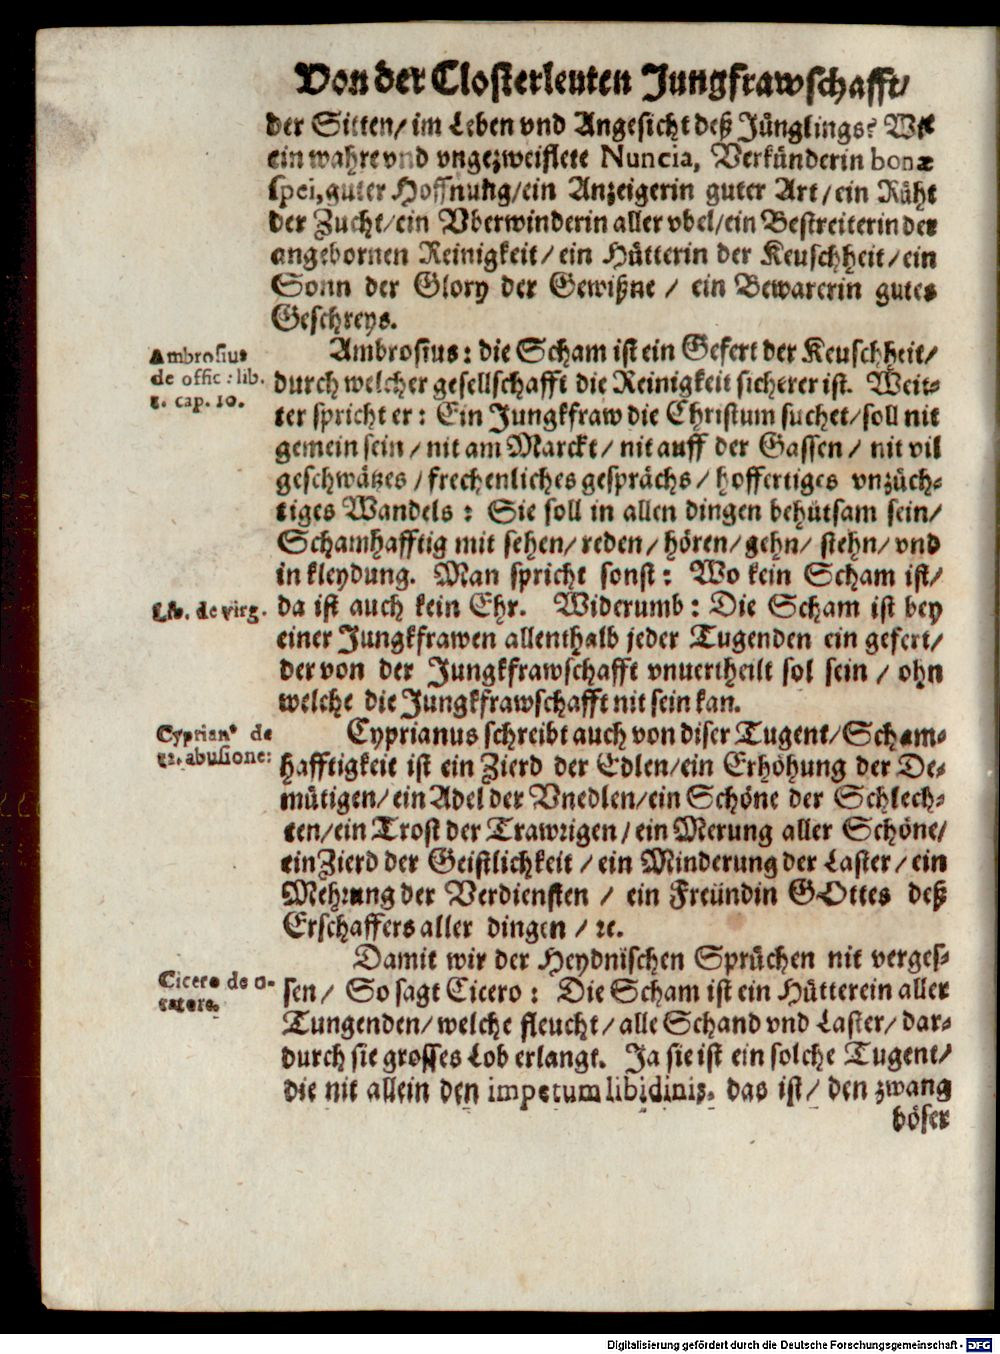 Von der Closterleuten Jungfrawschafft/
der Sitten/ im Leben vnd Angesicht deß Jünglings?
ein wahre vnd vngezweiflete Nuncia, Verkünderin bonæ
spei, guter Hoffnung/ ein Anzeigerin guter Art/ ein Rüht
der Zucht/ ein Vberwinderin aller vbel/ ein Bestreiterin der
angebornen Reinigkeit/ ein Hütterin der Keuschheit/ ein
Sonn der Glory der Gewißne / ein Bewarerin gutes
Geschreys.
Ambrosius de offic: lib. 1. cap. 10.
Ambrosius: die Scham ist ein Gefert der Keuschheit/
durch welcher gesellschafft die Reinigkeit sicherer ist. Weit-
ter spricht er: Ein Jungkfraw die Christum suchet/ soll nit
gemein sein / nit am Marckt / nit auff der Gassen / nit vil
geschwätzes / frechenliches gesprächs / hoffertiges vnzüch-
tiges Wandels: Sie soll in allen dingen behütsam sein/
Schamhafftig mit sehen/ reden/ hören/ gehn/ stehn/ vnd
in kleydung. Man spricht sonst: Wo kein Scham ist/
Lib. de virg.
da ist auch kein Ehr. Widerumb: Die Scham ist bey
einer Jungkfrawen allenthalb jeder Tugenden ein gefert/
der von der Jungkfrawschafft vnuertheilt sol sein / ohn
welche die Jungkfrawschafft nit sein kan.
Cyprianꝰ de 12. abusione:
Cyprianus schreibt auch von diser Tugent/ Scham-
hafftigkeit ist ein Zierd der Edlen/ ein Erhöhung der De-
mütigen/ ein Adel der Vnedlen/ ein Schöne der Schlech-
ten/ ein Trost der Trawrigen / ein Merung aller Schöne/
ein Zierd der Geistlichkeit / ein Minderung der Laster / ein
Mehrung der Verdiensten / ein Freündin GOttes deß
Erschaffers aller dingen / ꝛc.
Damit wir der Heydnischen Sprüchen nit verges-
Cicero de o- ratore.
sen/ So sagt Cicero: Die Scham ist ein Hütterein aller
Tungenden/ welche fleucht/ alle Schand vnd Laster/ dar-
durch sie grosses Lob erlangt. Ja sie ist ein solche Tugent/
die nit allein den impetum libidinis. das ist/ den zwang
böser
Digitalisierung gefördert durch die Deutsche Forschungsgemeinschaft - DFG